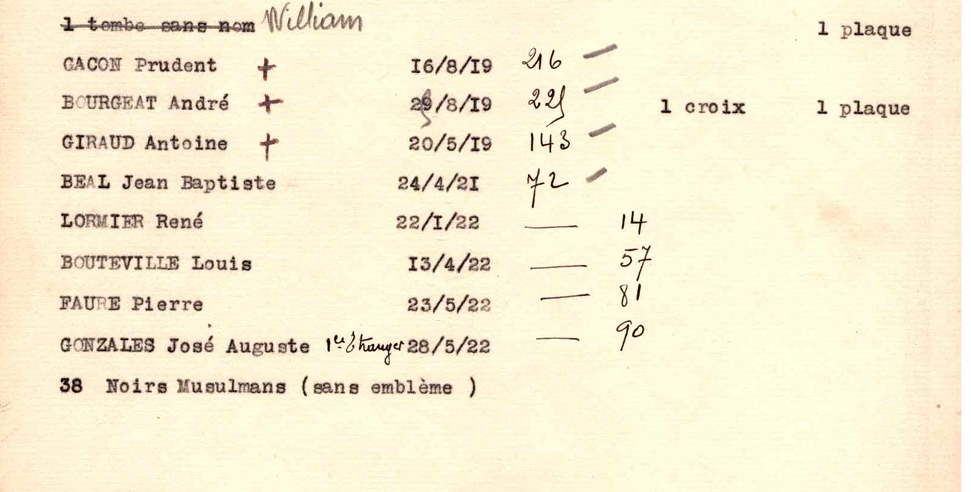 1 tombe sans nom William 1 plaque
GACON Prudent + 16/8/19 216
BOURGEAT André + 25/8/19 225 1 croix 1 plaque
GIRAUD Antoine + 20/5/19 143
BEAL Jean Baptiste 24/4/2I 72
LORMIER René 22/I/22 — 14
BOUTEVILLE Louis I3/4/22 — 57
FAURE Pierre 23/5/22 — 81
GONZALES José Auguste 1er Etranger 28/5/22 — 90
38 Noirs Musulmans (sans emblème )